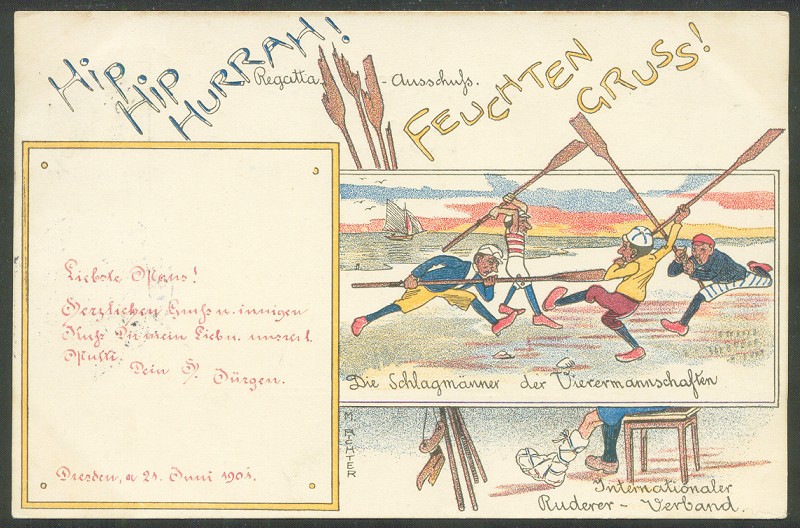 HIP
HIP
HURRAH!
Regatta-Ausschuß.
FEUCHTEN
GRUSS!
Liebste Maus!
Herzlichen Gruß u. innigen
Kuß Dir mein Lieb u. unserl.
Dein Jürgen.
Dresden, a 21. Juni 1901.
Die Schlagmänner der Vierermannschaften
M. RICHTER
Internationaler
Ruderer-Verband.